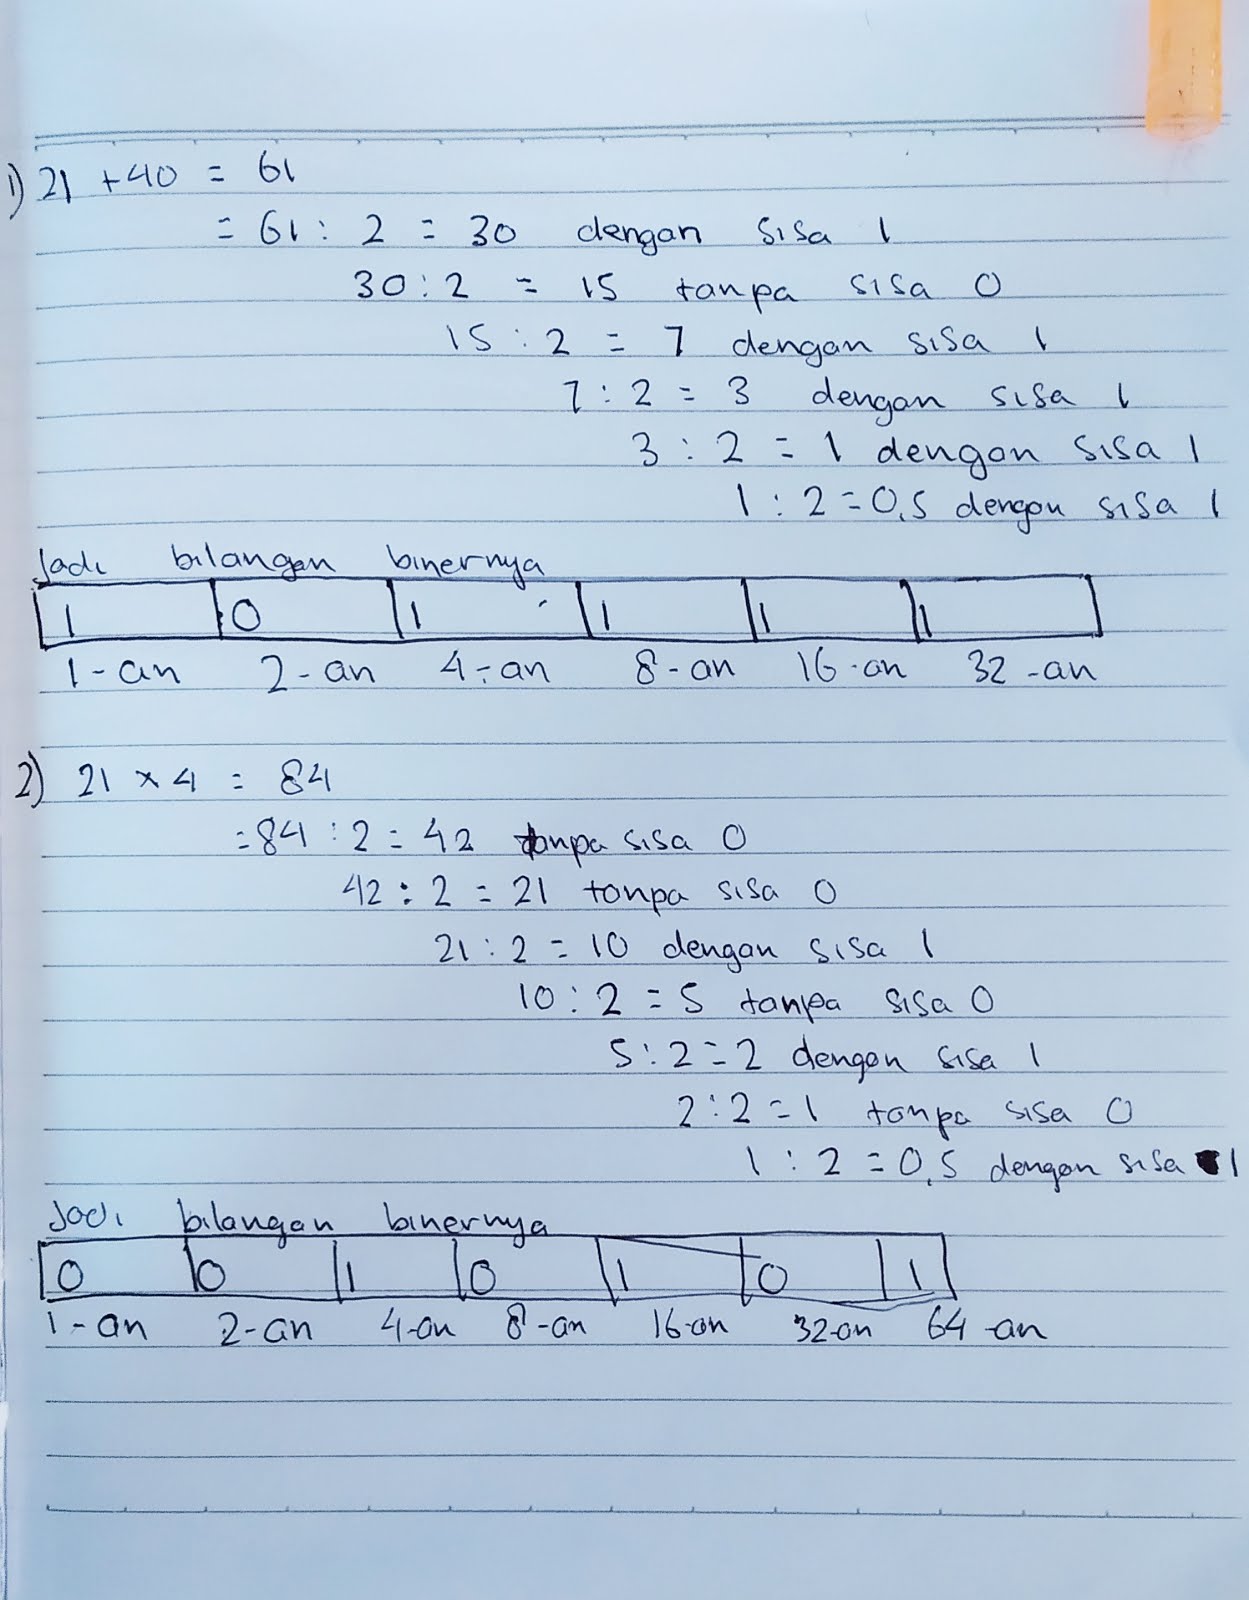 1) 21 + 40 = 61
= 61 : 2 = 30 dengan sisa 1
30 : 2 = 15 tanpa sisa 0
15 : 2 = 7 dengan sisa 1
7 : 2 = 3 dengan sisa 1
3 : 2 = 1 dengan sisa 1
1 : 2 = 0,5 dengan sisa 1
Jadi bilangan binernya
1 0 1 1 1 1
1-an 2-an 4-an 8-an 16-an 32-an
2) 21 x 4 = 84
= 84 : 2 = 42 tanpa sisa 0
42 : 2 = 21 tanpa sisa 0
21 : 2 = 10 dengan sisa 1
10 : 2 = 5 tanpa sisa 0
5 : 2 = 2 dengan sisa 1
2 : 2 = 1 tanpa sisa 0
1 : 2 = 0,5 dengan sisa 1
Jadi bilangan binernya
0 0 1 0 1 0 1
1-an 2-an 4-an 8-an 16-an 32-an 64-an